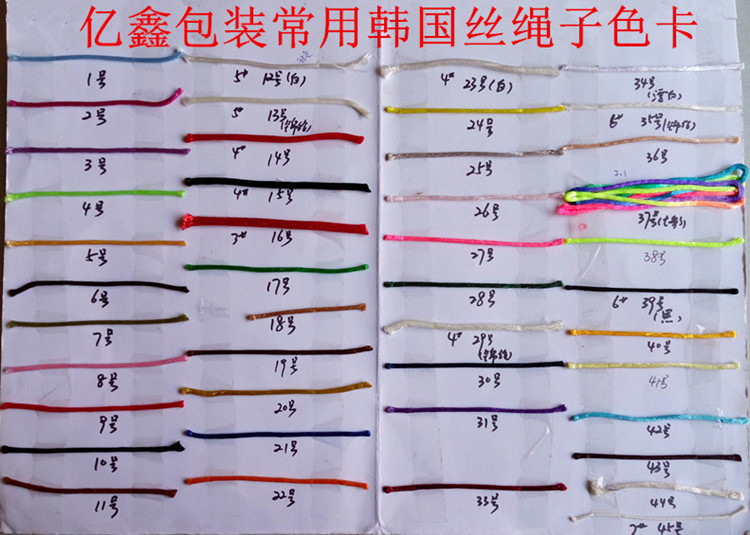 亿鑫包装常用韩国丝绳子色卡
1号
2号
3号
4号
5号
6号
7号
8号
9号
10号
11号
5# 12号(白)
5# 13号
4# 14号
4# 15号
3# 16号
17号
18号
19号
20号
21号
22号
4# 23号(白)
24号
25号
26号
27号
28号
4# 29号
30号
31号
33号
34号
6# 35号
36号
37号(七彩)
38号
6# 39号
(黑)
40号
41号
42号
43号
44号
7# 45号